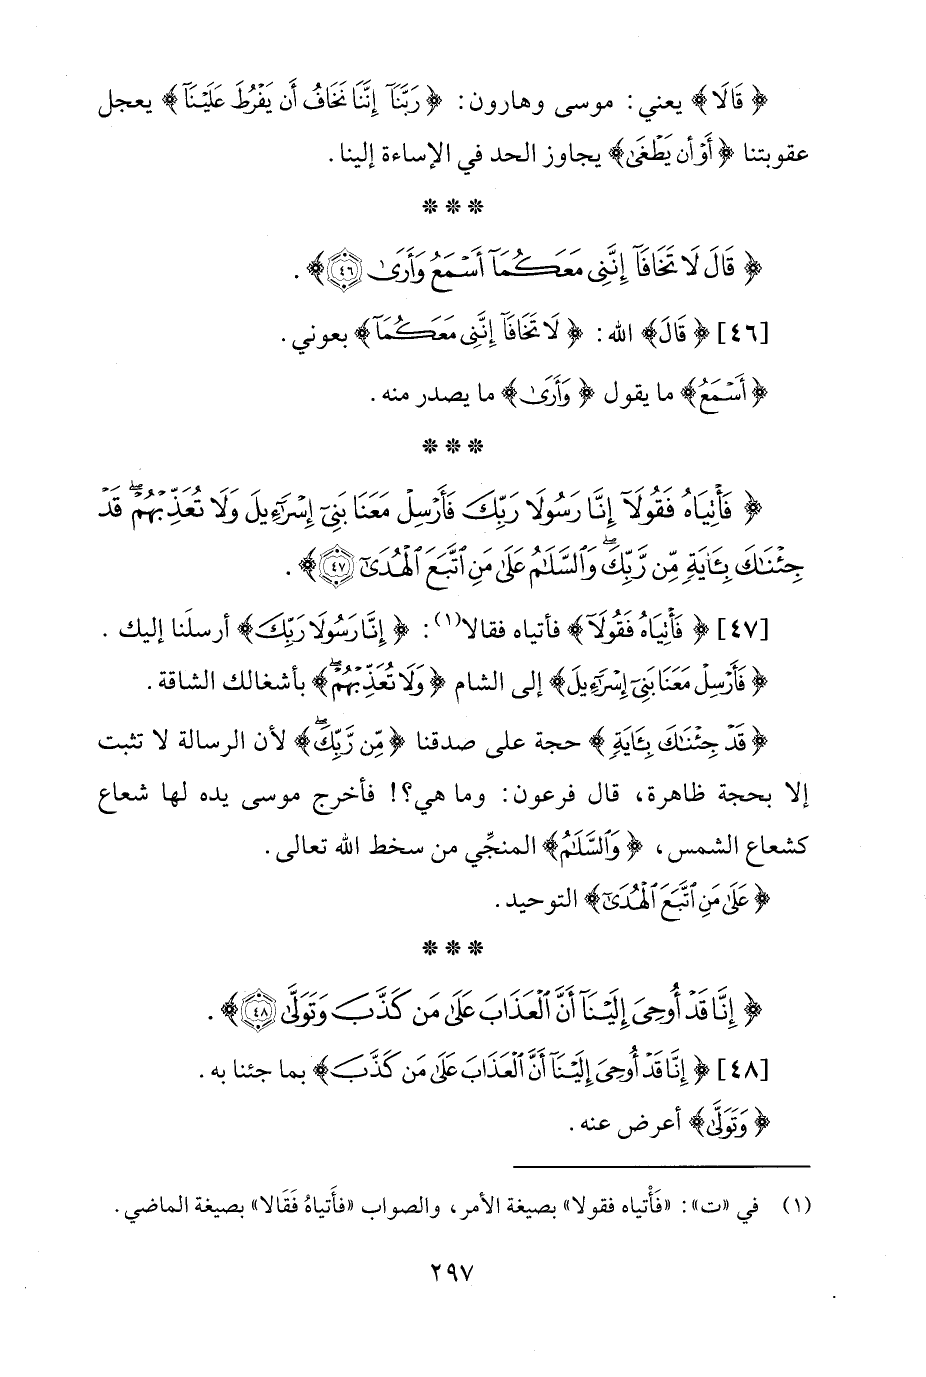 ﴿ قَالَا﴾ يعني: موسى وهارون: ﴿ رَبَّنَآ إِنَّنَا نَخَافُ أَن يَفْرُطَ عَلَيْنَآ﴾ يعجل
عقوبتنا ﴿ أَوْ أَن يَطْغَىٰ﴾ يجاوز الحد في الإساءة إلينا.
* * *
﴿ قَالَ لَا تَخَافَآ إِنَّنِى مَعَكُمَآ أَسْمَعُ وَأَرَىٰ ٤٦﴾.
[٤٦] ﴿ قَالَ﴾ الله: ﴿ لَا تَخَافَآ إِنَّنِى مَعَكُمَآ﴾ بعوني.
﴿ أَسْمَعُ﴾ ما يقول ﴿ وَأَرَىٰ﴾ ما يصدر منه.
* * *
﴿ فَأْتِيَاهُ فَقُولَآ إِنَّا رَسُولَا رَبِّكَ فَأَرْسِلْ مَعَنَا بَنِىٓ إِسْرَٰٓءِيلَ وَلَا تُعَذِّبْهُمْۖ قَدْ
جِئْنَٰكَ بِـَٔايَةٍ مِّن رَّبِّكَۖ وَٱلسَّلَٰمُ عَلَىٰ مَنِ ٱتَّبَعَ ٱلْهُدَىٰٓ ٤٧﴾.
[٤٧] ﴿ فَأْتِيَاهُ فَقُولَآ﴾ فأتياه فقالا(١): ﴿ إِنَّا رَسُولَا رَبِّكَ﴾ أرسلَنا إليك.
﴿ فَأَرْسِلْ مَعَنَا بَنِىٓ إِسْرَٰٓءِيلَ﴾ إلى الشام ﴿ وَلَا تُعَذِّبْهُمْۖ﴾ بأشغالك الشاقة.
﴿ قَدْ جِئْنَٰكَ بِـَٔايَةٍ﴾ حجة على صدقنا ﴿ مِّن رَّبِّكَۖ﴾ لأن الرسالة لا تثبت
إلا بحجة ظاهرة، قال فرعون: وما هي؟! فأخرج موسى يده لها شعاع
كشعاع الشمس، ﴿ وَٱلسَّلَٰمُ﴾ المنجِّي من سخط الله تعالى.
﴿ عَلَىٰ مَنِ ٱتَّبَعَ ٱلْهُدَىٰٓ﴾ التوحيد.
* * *
﴿ إِنَّا قَدْ أُوحِىَ إِلَيْنَآ أَنَّ ٱلْعَذَابَ عَلَىٰ مَن كَذَّبَ وَتَوَلَّىٰ ٤٨﴾.
[٤٨] ﴿ إِنَّا قَدْ أُوحِىَ إِلَيْنَآ أَنَّ ٱلْعَذَابَ عَلَىٰ مَن كَذَّبَ﴾ بما جئنا به.
﴿ وَتَوَلَّىٰ﴾ أعرض عنه.
(١) في «ت»: «فَأْتياه فقولا» بصيغة الأمر، والصواب «فأَتياهُ فَقَالا» بصيغة الماضي.
٢٩٧